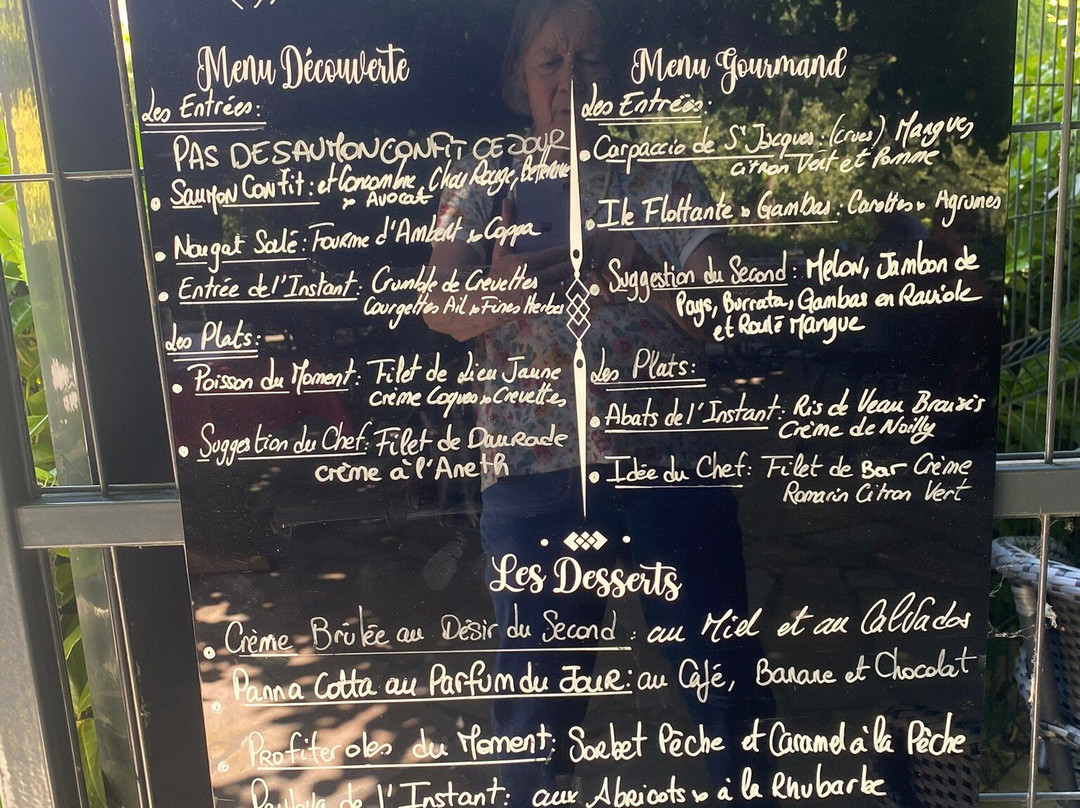 Menu Découverte
Les Entrées:
PAS DE SAUMON CONFIT CE JOUR
• Saumon Confit: et Concombre, Chou Rouge, Betterave
& Avocat
• Nougat Salé: Fourme d'Ambert & Coppa
• Entrée de l'Instant: Crumble de Crevettes
Courgettes Ail & Fines Herbes
Les Plats:
• Poisson du Moment: Filet de Lieu Jaune
crème Coques & Crevettes
• Suggestion du Chef: Filet de Daurade
crème à l'Aneth
Menu Gourmand
Les Entrées:
• Carpaccio de St Jacques: (crues) Mangues
citron Vert et Pomme
• Ile Flottante & Gambas: Carottes & Agrumes
• Suggestion du Second: Melon, Jambon de
Pays, Burrata, Gambas en Raviole
et Roulé Mangue
Les Plats:
• Abats de l'Instant: Ris de Veau Braisés
Crème de Noilly
• Idée du Chef: Filet de Bar Crème
Romarin Citron Vert
Les Desserts
• Crème Brûlée au Désir du Second: au Miel et au Calvados
• Panna Cotta au Parfum du Jour: au Café, Banane et Chocolat
• Profiteroles du Moment: Sorbet Pêche et Caramel à la Pêche
de l'Instant: aux Abricots & à la Rhubarbe